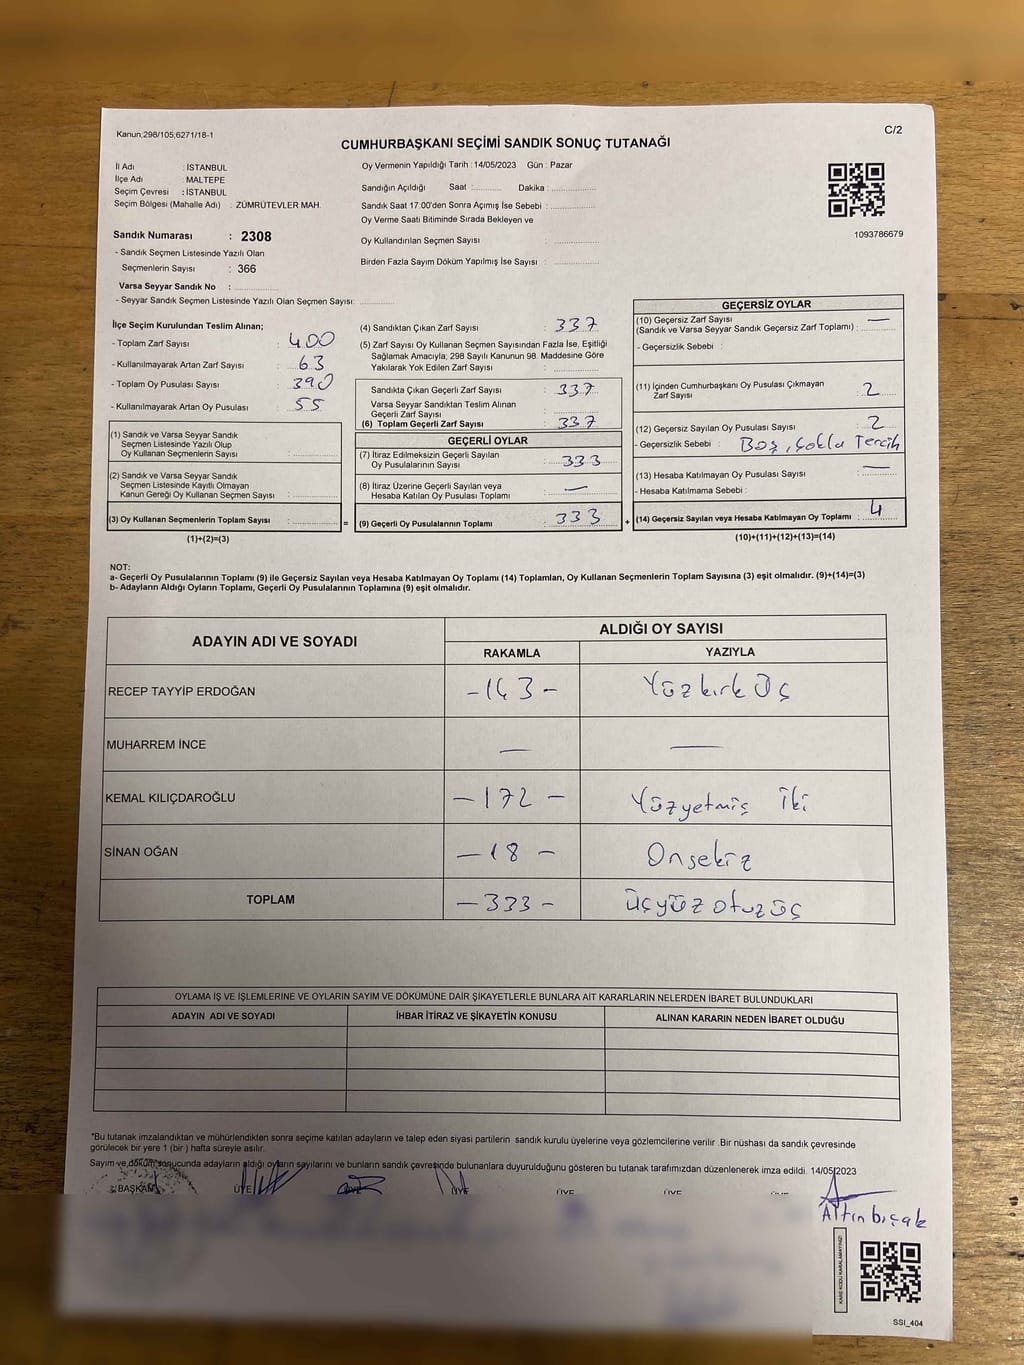 Kanun,298/105,6271/18-1
C/2
CUMHURBAŞKANI SEÇİMİ SANDIK SONUÇ TUTANAĞI
İl Adı : İSTANBUL
İlçe Adı : MALTEPE
Seçim Çevresi : İSTANBUL
Seçim Bölgesi (Mahalle Adı) : ZÜMRÜTEVLER MAH.
Sandık Numarası : 2308
- Sandık Seçmen Listesinde Yazılı Olan
Seçmenlerin Sayısı : 366
Varsa Seyyar Sandık No :
- Seyyar Sandık Seçmen Listesinde Yazılı Olan Seçmen Sayısı:
Oy Vermenin Yapıldığı Tarih : 14/05/2023 Gün : Pazar
Sandığın Açıldığı Saat : Dakika :
Sandık Saat 17:00'den Sonra Açımış İse Sebebi :
Oy Verme Saati Bitiminde Sırada Bekleyen ve
Oy Kullandırılan Seçmen Sayısı :
Birden Fazla Sayım Döküm Yapılmış İse Sayısı :
1093786679
İlçe Seçim Kurulundan Teslim Alınan;
- Toplam Zarf Sayısı : 400
- Kullanılmayarak Artan Zarf Sayısı : 63
- Toplam Oy Pusulası Sayısı : 390
- Kullanılmayarak Artan Oy Pusulası : 55
(1) Sandık ve Varsa Seyyar Sandık
Seçmen Listesinde Yazılı Olup
Oy Kullanan Seçmenlerin Sayısı :
(2) Sandık ve Varsa Seyyar Sandık
Seçmen Listesinde Kayıtlı Olmayan
Kanun Gereği Oy Kullanan Seçmen Sayısı :
(3) Oy Kullanan Seçmenlerin Toplam Sayısı : =
(1)+(2)=(3)
(4) Sandıktan Çıkan Zarf Sayısı : 337
(5) Zarf Sayısı Oy Kullanan Seçmen Sayısından Fazla İse, Eşitliği
Sağlamak Amacıyla; 298 Sayılı Kanunun 98. Maddesine Göre
Yakılarak Yok Edilen Zarf Sayısı :
Sandıkta Çıkan Geçerli Zarf Sayısı : 337
Varsa Seyyar Sandıktan Teslim Alınan
Geçerli Zarf Sayısı :
(6) Toplam Geçerli Zarf Sayısı : 337
GEÇERLİ OYLAR
(7) İtiraz Edilmeksizin Geçerli Sayılan
Oy Pusulalarının Sayısı : 333
(8) İtiraz Üzerine Geçerli Sayılan veya
Hesaba Katılan Oy Pusulası Toplamı : —
(9) Geçerli Oy Pusulalarının Toplamı : 333 +
GEÇERSİZ OYLAR
(10) Geçersiz Zarf Sayısı —
(Sandık ve Varsa Seyyar Sandık Geçersiz Zarf Toplamı) :
- Geçersizlik Sebebi :
(11) İçinden Cumhurbaşkanı Oy Pusulası Çıkmayan
Zarf Sayısı : 2
(12) Geçersiz Sayılan Oy Pusulası Sayısı : 2
- Geçersizlik Sebebi : Boş, Çoklu Tercih
(13) Hesaba Katılmayan Oy Pusulası Sayısı : —
- Hesaba Katılmama Sebebi :
(14) Geçersiz Sayılan veya Hesaba Katılmayan Oy Toplamı : 4
(10)+(11)+(12)+(13)=(14)
NOT:
a- Geçerli Oy Pusulalarının Toplamı (9) ile Geçersiz Sayılan veya Hesaba Katılmayan Oy Toplamı (14) Toplamları, Oy Kullanan Seçmenlerin Toplam Sayısına (3) eşit olmalıdır. (9)+(14)=(3)
b- Adayların Aldığı Oyların Toplamı, Geçerli Oy Pusulalarının Toplamına (9) eşit olmalıdır.
ADAYIN ADI VE SOYADI ALDIĞI OY SAYISI
RAKAMLA YAZIYLA
RECEP TAYYİP ERDOĞAN -143- Yüzkırk Üç
MUHARREM İNCE — —
KEMAL KILIÇDAROĞLU -172- Yüzyetmiş İki
SİNAN OĞAN -18- Onsekiz
TOPLAM -333- üçyüz otuz üç
OYLAMA İŞ VE İŞLEMLERİNE VE OYLARIN SAYIM VE DÖKÜMÜNE DAİR ŞİKAYETLERLE BUNLARA AİT KARARLARIN NELERDEN İBARET BULUNDUKLARI
ADAYIN ADI VE SOYADI İHBAR İTİRAZ VE ŞİKAYETİN KONUSU ALINAN KARARIN NEDEN İBARET OLDUĞU
*Bu tutanak imzalandıktan ve mühürlendikten sonra seçime katılan adayların ve talep eden siyasi partilerin sandık kurulu üyelerine veya gözlemcilerine verilir .Bir nüshası da sandık çevresinde
görülecek bir yere 1 (bir ) hafta süreyle asılır.
Sayım ve döküm sonucunda adayların aldığı oyların sayılarını ve bunların sandık çevresinde bulunanlara duyurulduğunu gösteren bu tutanak tarafımızdan düzenlenerek imza edildi. 14/05/2023
BAŞKAN ÜYE ÜYE ÜYE ÜYE ÜYE ÜYE
Altınbıçak
KARE KODU KARALAMAYINIZ!
SSI_404